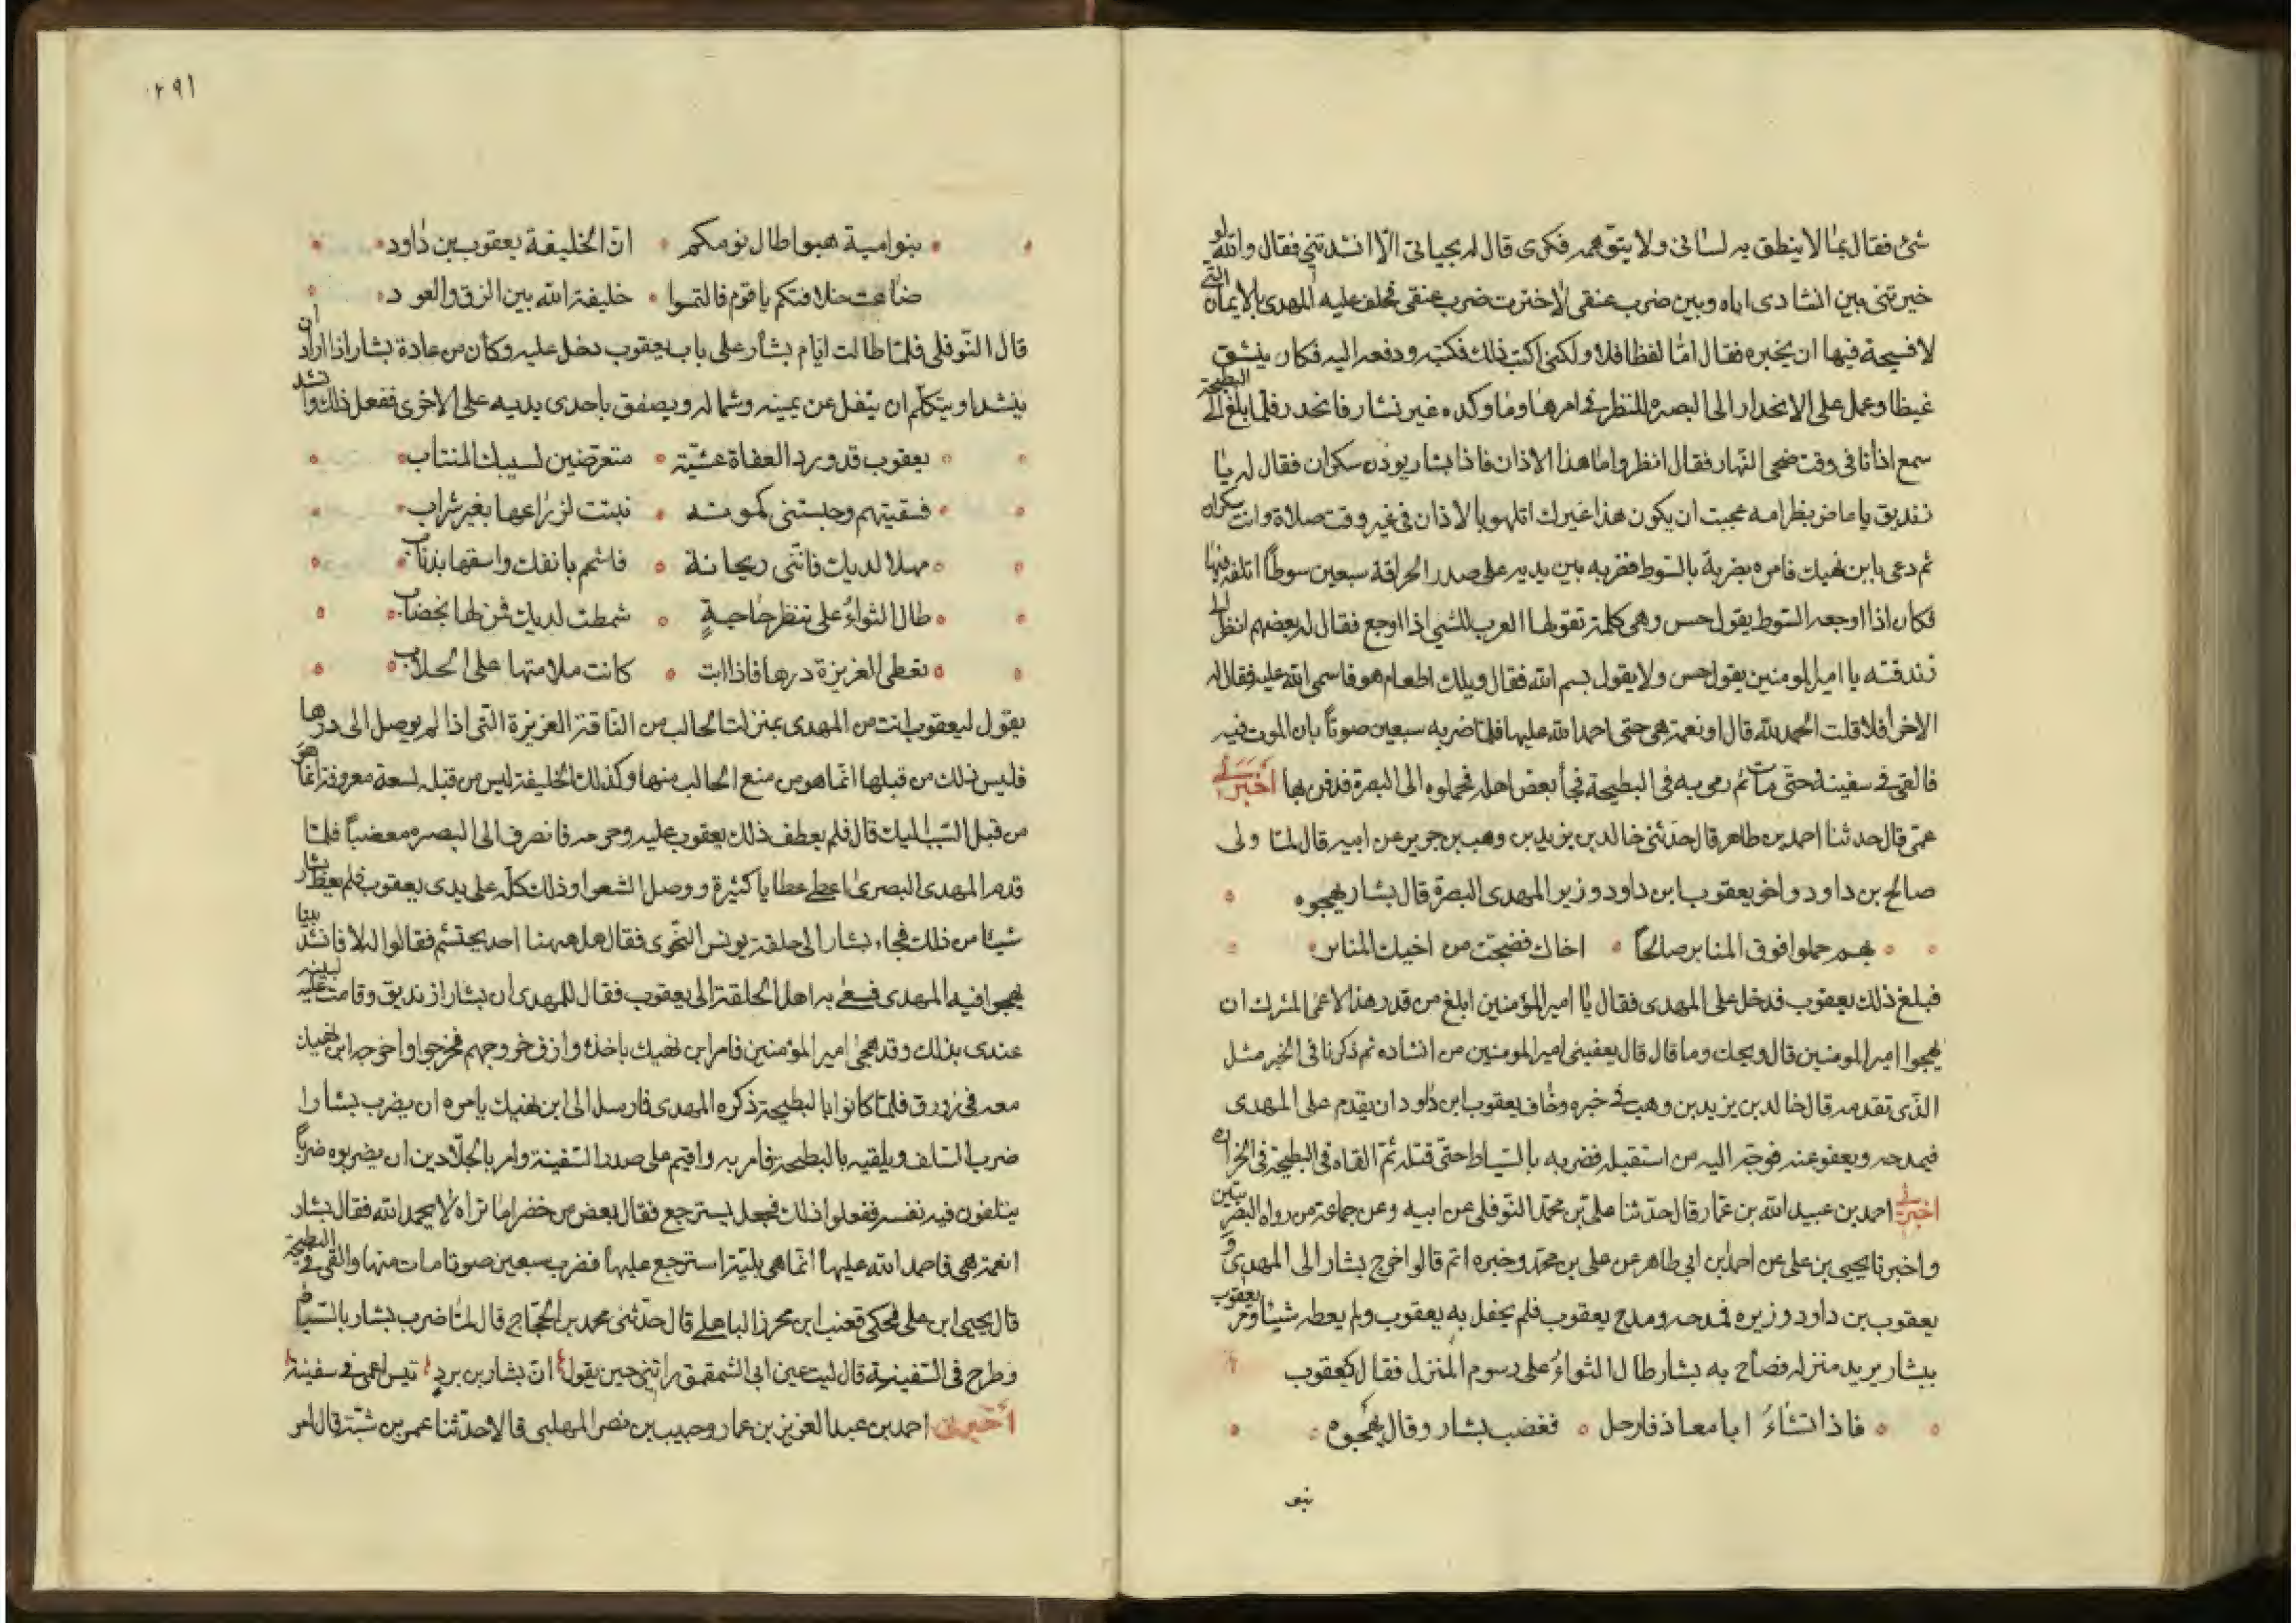 شئ فقال بما لا ينطق به لسانى ولا يتوهمه فكرى قال له بحياتى الا انشدتنى فقال والله لو
خيرتنى بين انشادى اياه وبين ضرب عنقى لاخترت ضرب عنقى فحلف عليه المهدى بالايمان التى
لا فسيحة فيها ان يخبره فقال اما لفظا فلا ولكنى اكتب ذلك فكتبه ودفعه اليه فكان ينشق
غيظا وعمل على الانحدار الى البصره للنظر فى امرها وما وكده غير بشار فانحدر فلما ابلغ الى البطيحة
سمع اذانا فى وقت ضحى النهار فقال انظروا ما هذا الاذان فاذا بشار يوذن سكران فقال له يا
زنديق يا عاض بظر امه عجبت ان يكون هذا غيرك اتلهو بالاذان فى غير وقت صلاة وانت سكران
ثم دعى بابن نهيك فامره بضربة بالسوط فضربه بين يديه على صدر الحراقة سبعين سوطاً اتلفه فيها
فكان اذا اوجعه السوط يقول حس وهى كلمة تقولها العرب للشيئ اذا اوجع فقال له بعضهم انظر الى
زندقته يا امير المومنين يقول حس ولا يقول بسم الله فقال ويلك اطعام هو فاسمى الله عليه فقال له
الاخر أفلا قلت الحمد لله قال او نعمة هى حتى احمد الله عليها فلما ضربه سبعين صوتاً بان الموت فيه
فالقى فى سفينة حتى مات ثم رمى به فى البطيحة فجأ بعض اهله فحملوه الى البصرة فدفن بها أخبرنى
عمى قال حدثنا احمد بن طاهر قال حدثنى خالد بن يزيد بن وهب بن جرير عن ابيه قال لما ولى
صالح بن داود واخو يعقوب ابن داود وزير المهدى البصرة قال بشار يهجوه
هم حملوا فوق المنابر صالحاً اخاك فضجت من اخيك المنابر
فبلغ ذلك يعقوب فدخل على المهدى فقال يا امير المؤمنين ابلغ من قدر هذا الاعمى المشرك ان
يهجوا امير المومنين قال ويحك وما قال قال يعفينى امير المومنين من انشاده ثم ذكرنا فى الخبر مثل
الذى تقدمه قال خالد بن يزيد بن وهب فى خبره وخاف يعقوب ابن داود ان يقدم على المهدى
فيمدحه ويعفو عنه فوجه اليه من استقبله فضربه بالسياط حتى قتله ثم القاه فى البطيحة فى الخراره
اخبرنى احمد بن عبيد الله بن عمار قال حدثنا على بن محمد النوفلى عن ابيه وعن جماعة من رواه البصريين
واخبرنا يحيى بن على عن احمد بن ابى طاهر عن على بن محمد وخبره اتم قالوا خرج بشار الى المهدى و
يعقوب بن داود وزيره فمدحه ومدح يعقوب فلم يحفل به يعقوب ولم يعطه شيئا ومر يعقوب
ببشار يريد منزله فصاح به بشار طال الثواءُ على رسوم المنزل فقال يعقوب
فاذا تشاءَ ابا معاذ فارحل فغضب بشار وقال يهجوه
بنو
٢٩١
بنو امية هبوا طال نومكم ان الخليفة يعقوب بن داود
ضاعت خلافتكم يا قوم فالتمسوا خليفة الله بين الزق والعود
قال النوفلى فلما طالت ايام بشار على باب يعقوب دخل عليه وكان من عادة بشار اذا اراد ان
ينشد او يتكلم ان يتفل عن يمينه وشماله ويصفق باحدى يديه على الاخرى ففعل ذلك وانشد
يعقوب قد ورد العفاة عشية متعرضين لسيبك المنتاب
فسقيتهم وحبستنى كمونـة نبتت لزراعها بغير شراب
مهلا لديك فاننى ريحانة فاشمم بانفك واسقها بذناب
طال الثواءُ على تنظر حاجةٍ شمطت لديك فمن لها بخضاب
تعطى الغزيزة درها فاذا ابت كانت ملامتها على الحلاب
يقول ليعقوب انت من المهدى بمنزلت الحالب من الناقة الغزيزة التى اذا لم يوصل الى درها
فليس ذلك من قبلها انما هو من منع الحالب منها وكذلك الخليفة ليس من قبله لسعة معروفة انما هو
من قبل السبب اليك قال فلم يعطف ذلك يعقوب عليه وحرمه فانصرف الى البصره مغضباً فلما
قدم المهدى البصرى اعطى عطايا كثيرة ووصل الشعرا وذلك كله على يدى يعقوب فلم يعط بشار
شيئا من ذلك فجاء بشار الى حلقة يونس النحوى فقال هل ههنا احد يحتشم فقالوا له لا فانشد بيتا
يهجوا فيه المهدى فسعى به اهل الحلقة الى يعقوب فقال للمهدى ان بشارا زنديق وقامت عليه البينه
عندى بذلك وقد هجى امير المؤمنين فامر ابن نهيك باخذه وازف خروجهم فخرجوا واخرجه ابن نهيك
معه فى زورق فلما كانوا بالبطيحة ذكره المهدى فارسل الى ابن نهيك يامره ان يضرب بشارا
ضرب التلف ويلقيه بالبطيحة فامر به واقيم على صدر السفينة وامر بالجلادين ان يضربوه ضرباً
يتلفون فيه نفسه ففعلوا ذلك فجعل يسترجع فقال بعض من حضر اما تراه لا يحمد الله فقال بشار
انعمة هى فاحمد الله عليها انما هى بلية استرجع عليها فضرب سبعين صوتا مات منها والقى فى البطيحة
قال يحيى ابن على فحكى قعنب ابن محرز الباهلى قال حدثنى محمد بن الحجاج قال لما ضرب بشار بالسياط
وطرح فى السفينة قال ليت عين ابى الشمقمق راتنى حين يقول ان بشار بن برد تيس اعمى فى سفينة
أخبرنى احمد بن عبد العزيز بن عمار وحبيب بن نصر المهلبى قالا حدثنا عمر بن شبة قال امر